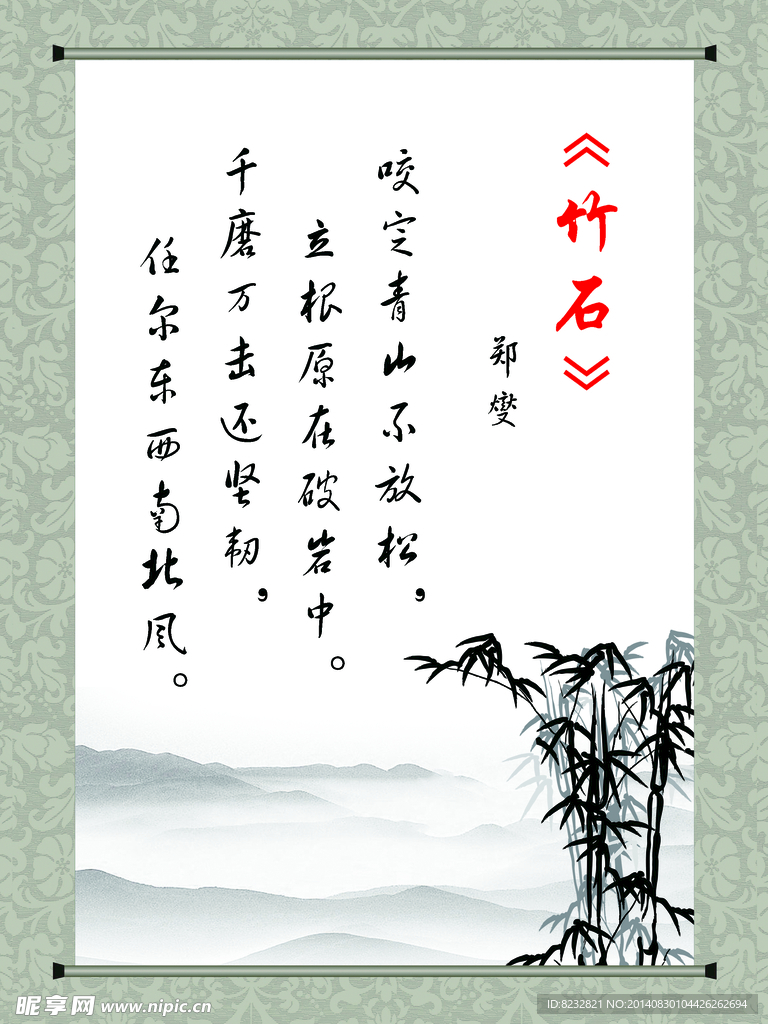 《竹石》
郑燮
咬定青山不放松，
立根原在破岩中。
千磨万击还坚韧，
任尔东西南北风。
昵享网 www.nipic.cn
ID:8232821 NO:20140830104426262694